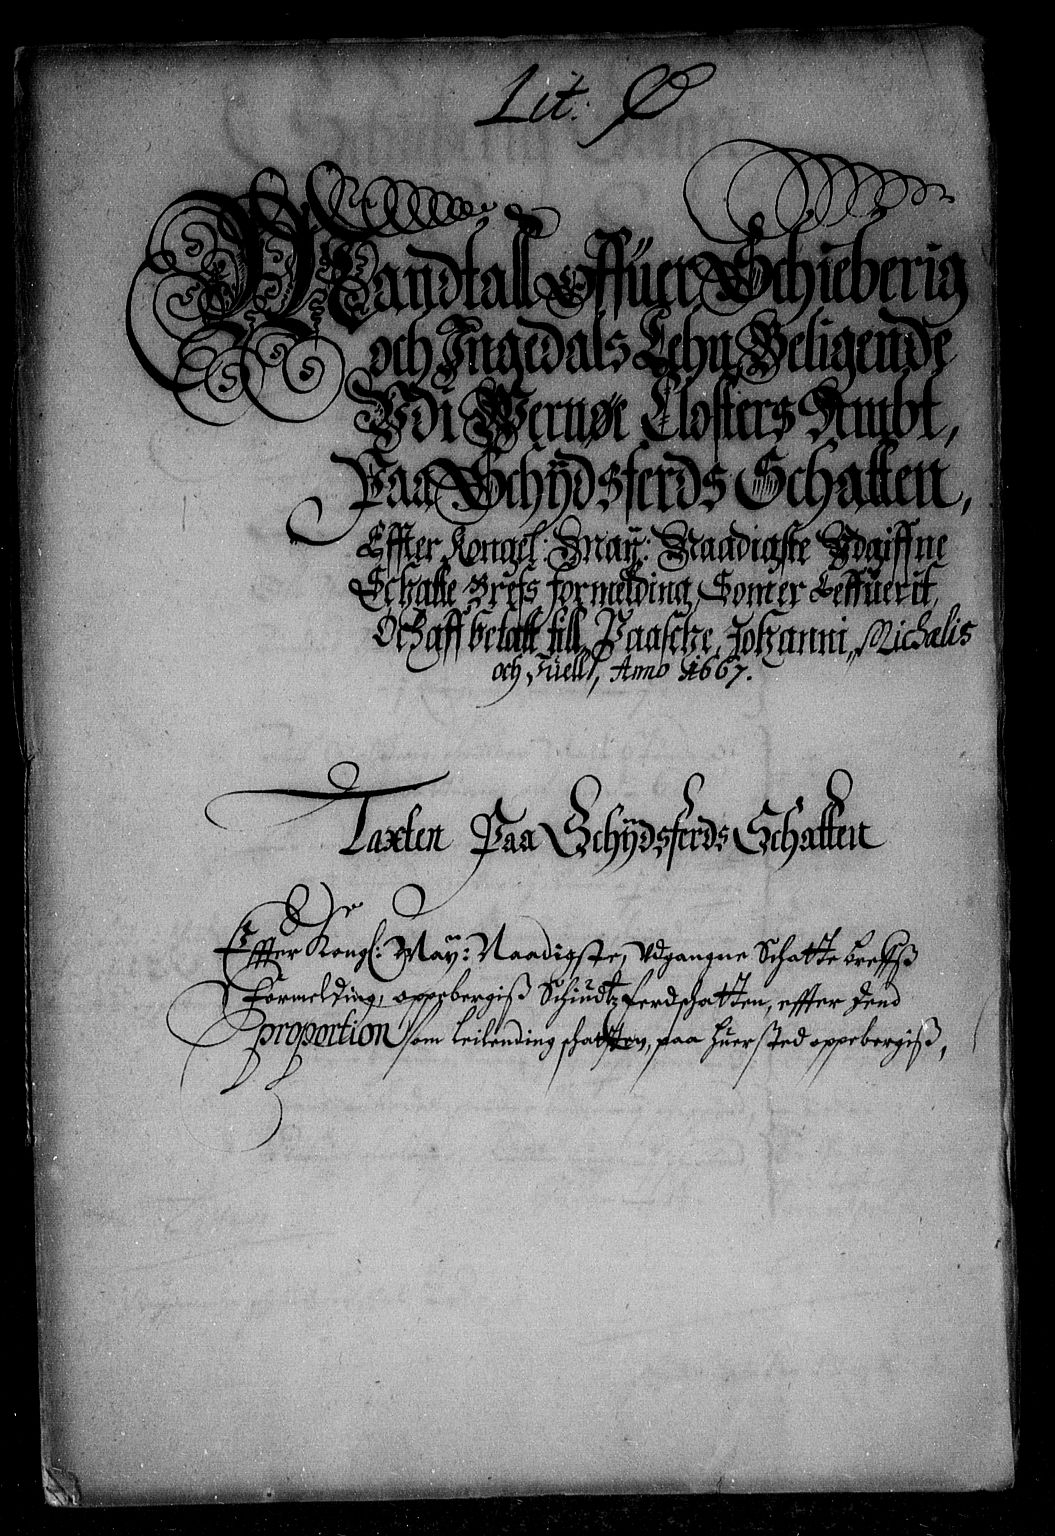 Lit: Ø
Mandtall Offuer Schieberig
och Ingedals Lehn Beligende
Vdi Wernøe Closters Ambt,
Paa Schÿdsferds Schatten,
Effter Kongel: Maÿ: Naadigste Vdgiffne
Schatte Brefs formelding, Som er Leffuerit,
Och aff betalt till, Paasche, Johanni, Michælis
och Juell, Anno 1667.
Taxten Paa Schÿdsferds Schatten
Effter Kongl: Maÿ: Naadigste, Vdgangne Schatte breffß
formelding, oppebergiß Schiudtzferdschatten, effter dend
proportion som leilending schatten, paa huer sted oppebergiß,